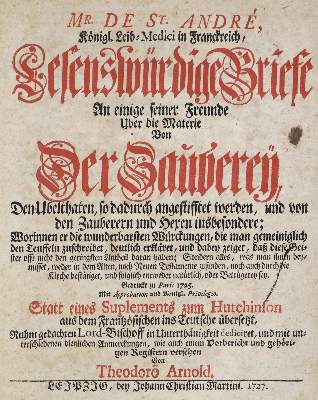 MR. DE ST. ANDRÉ,
Königl. Leib-Medici in Franckreich,
Lesenswürdige Briefe
An einige seiner Freunde
Über die Materie
Von
Der Zauberey,
Den Ubelthaten, so dadurch angestifftet werden, und von
den Zauberern und Hexen insbesondere;
Worinnen er die wunderbarsten Würckungen, die man gemeiniglich
den Teuffeln zuschreibet, deutlich erkläret, und dabey zeiget, daß diese Gei-
ster offt nicht den geringsten Antheil daran haben; Sondern alles, was man ihnen bey-
misset, weder in dem Alten, noch Neuen Testamente gefunden, noch auch durch die
Kirche bestätiget, und folglich entweder natürlich, oder Betrügerey sey.
Gedruckt zu Paris 1725.
Mit Approbation und Königl. Privilegio.
Statt eines Suplements zum Hutchinson
aus dem Frantzösischen ins Teutsche übersetzt,
Ruhmgedachten Lord-Bischoff in Unterthänigkeit dediciret, und mit un-
terschiedenen dienlichen Anmerckungen, wie auch einem Vorbericht und gehöri-
gen Registern versehen
Von
Theodoro Arnold.
LEIPZIG, bey Johann Christian Martini. 1727.